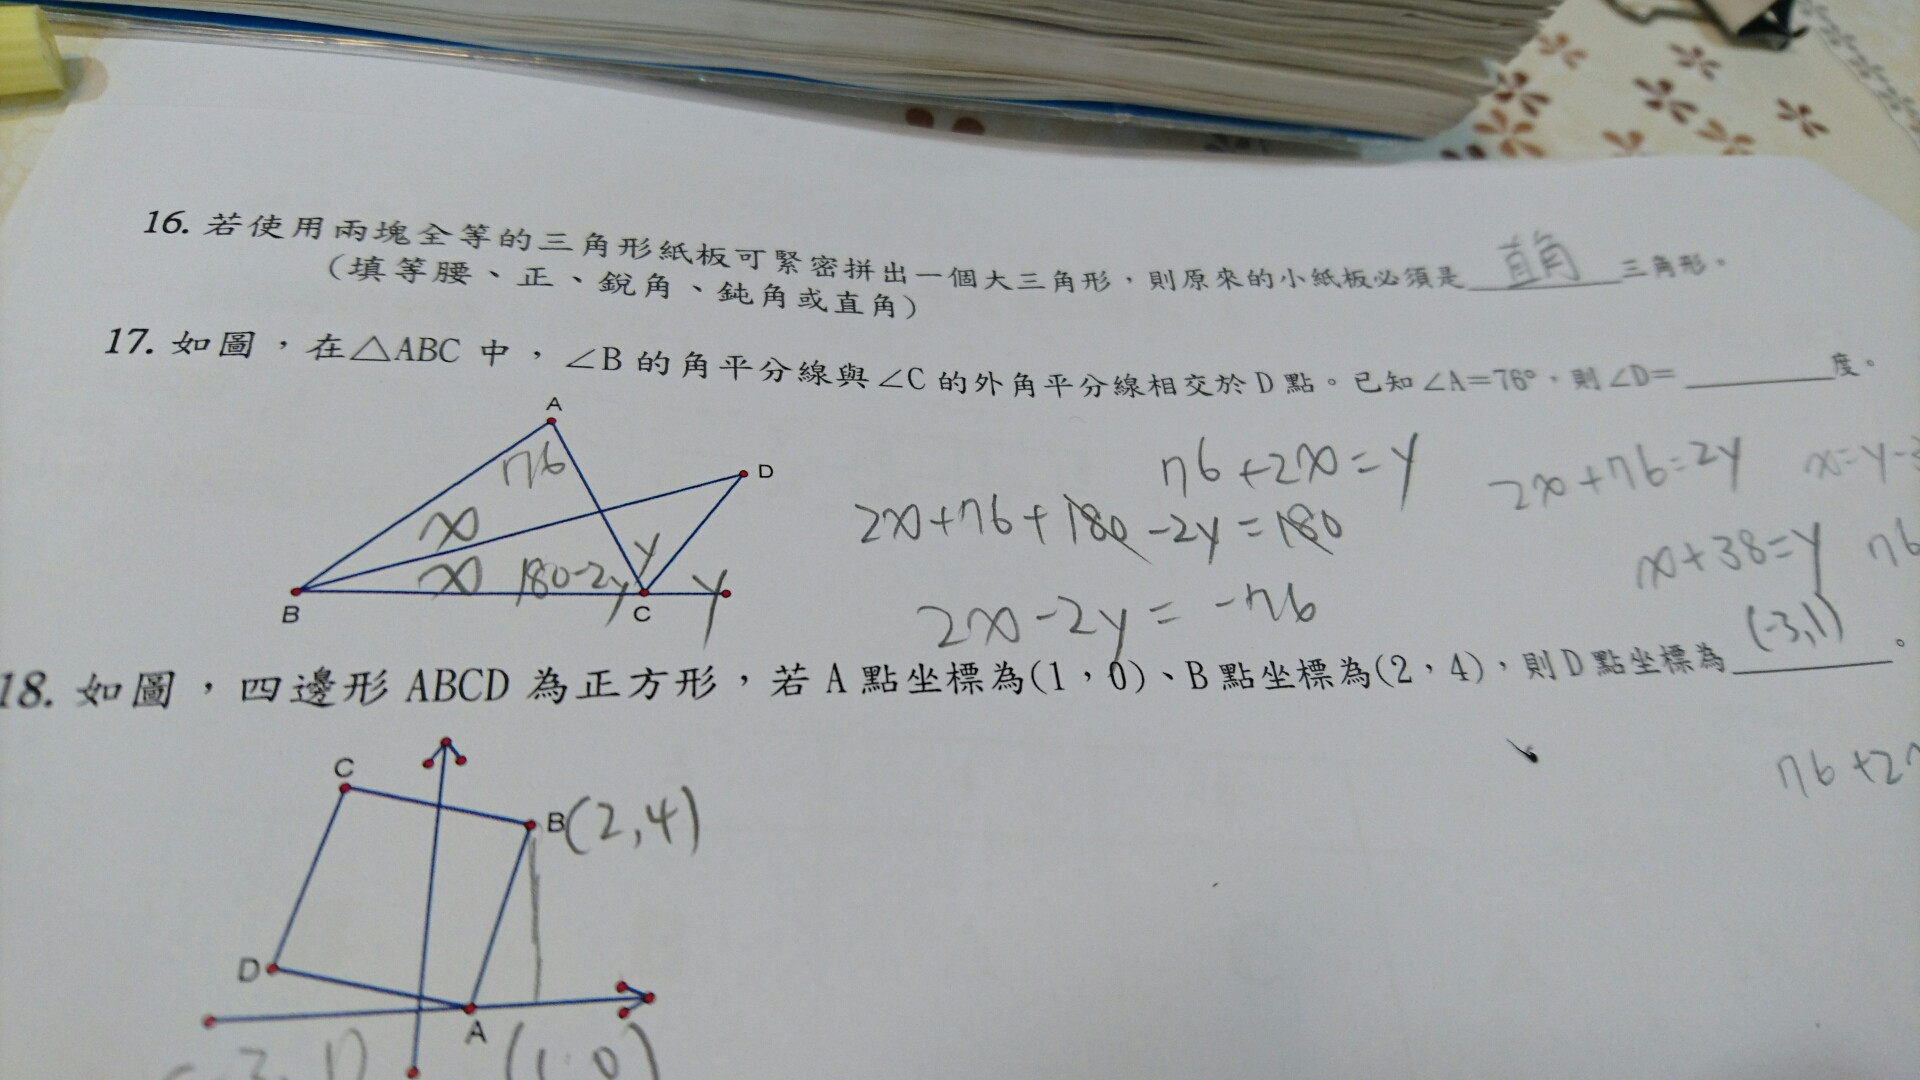 16. 若使用兩塊全等的三角形紙板可緊密拼出一個大三角形，則原來的小紙板必須是 直角 三角形。
（填等腰、正、銳角、鈍角或直角）
17. 如圖，在△ABC 中，∠B 的角平分線與∠C 的外角平分線相交於 D 點。已知∠A=76°，則∠D=________度。
A
76
D
x
x
180-2y
y
y
B
C
76+2x=y
2x+76+180-2y=180
2x-2y=-76
2x+76=2y
x=y-3
x+38=y
76
18. 如圖，四邊形 ABCD 為正方形，若 A 點坐標為(1，0)、B 點坐標為(2，4)，則 D 點坐標為 (-3,1)。
76+2
C
B(2,4)
D
A
(1,0)